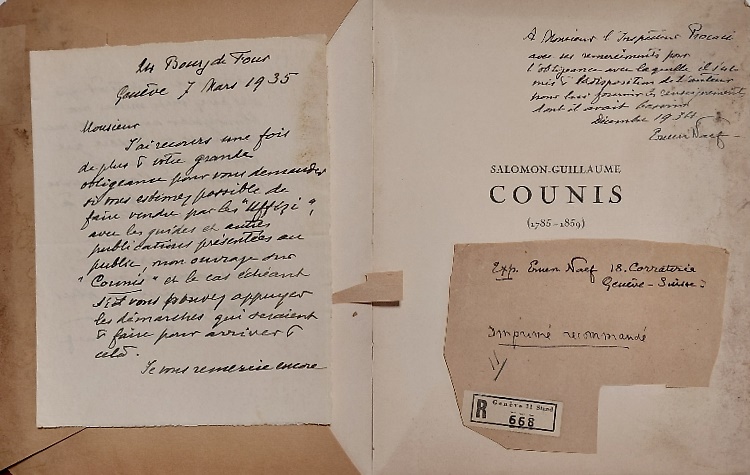 24 Bourg de Four
Genève 7 Mars 1935
Monsieur
J'ai recours une fois
de plus à votre grande
obligeance pour vous demander
si vous estimez possible de
faire vendre par les "Uffizi",
avec les guides et autres
publications présentées au
public, mon ouvrage sur
"Counis" et le cas échéant
s'il vous pouvez appuyer
les démarches qui seraient
à faire pour arriver à
celà.
Je vous remercie encore
A Monsieur l'Inspecteur
avec ses remerciements pour
l'obligeance avec laquelle il s'est
mis à la disposition de l'auteur
pour lui fournir les renseignements
dont il avait besoin
Décembre 1934
Enen Naef
SALOMON-GUILLAUME
COUNIS
(1785-1859)
Exp. Enen Naef 18. Corraterie
Genève - Suisse
Imprimé recommandé
R
Genève 11 Stand
668